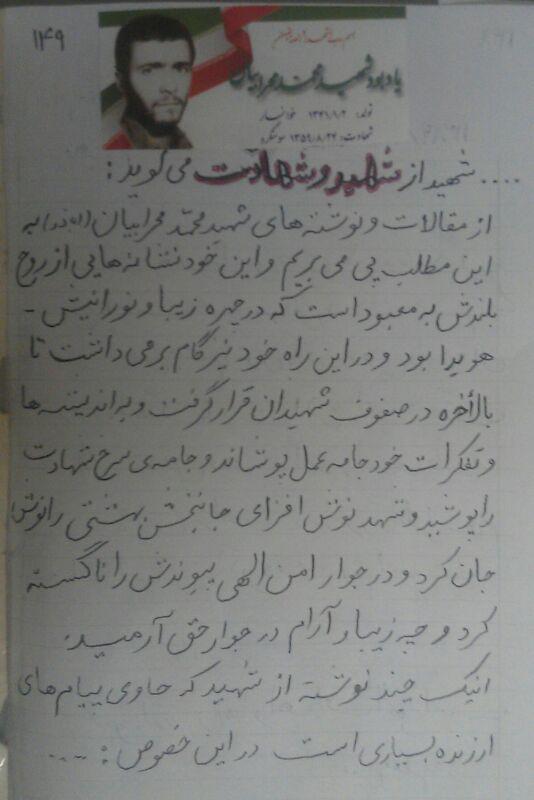 ۱۴۹
بسم رب الشهداء والصدیقین
یادبود شهید محمد محرابیان
تولد: ۱۳۴۱/۹/۲ خوانسار
شهادت: ۱۳۵۹/۸/۲۷ سوسنگرد
.... شهید از شهید و شهادت می گوید:
از مقالات و نوشته های شهید محمد محرابیان به
این مطلب پی می بریم و این خود نشانه هایی از روح
بلندش به معبود است که در چهره زیبا و نورانیش -
هویدا بود و در این راه خود نیز گام برمی داشت تا
بالأخره در صفوف شهیدان قرار گرفت و به اندیشه ها
و تفکرات خود جامه عمل پوشاند و جامه ی سرخ شهادت
را پوشید و شهد نوش افزای جانبخش بهشتی را نوش
جان کرد و در جوار امن الهی پیوندش را ناگسسته
کرد و چه زیبا و آرام در جوار حق آرمید.
اینک چند نوشته از شهید که حاوی پیام های
ارزنده بسیاری است در این خصوص: ....